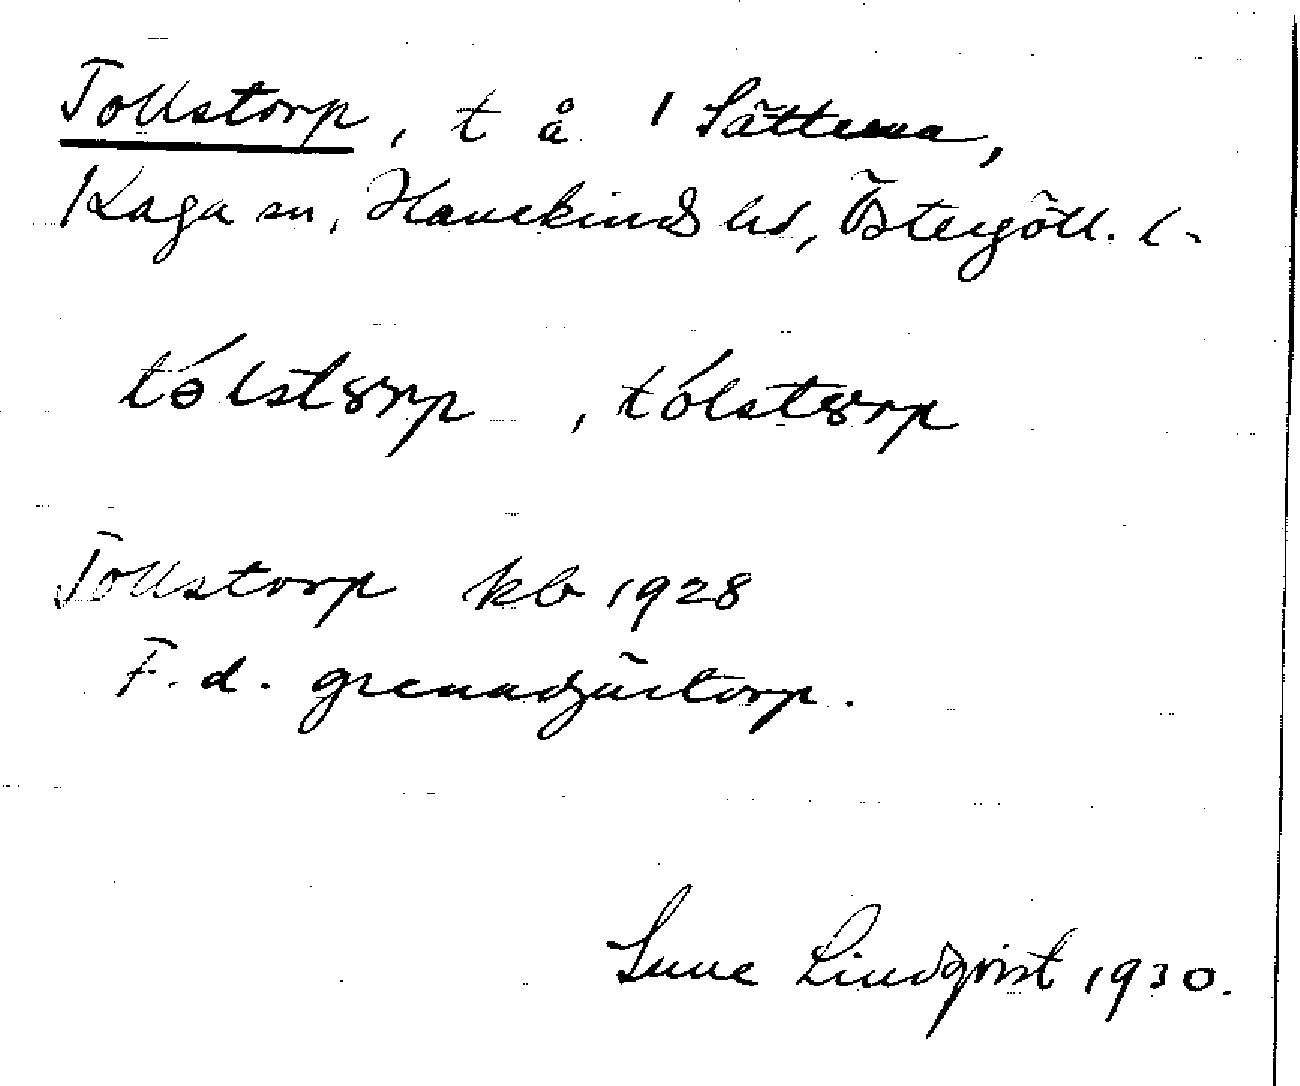 Tollstorp, t å 1 Sätterna,
Kaga sn, Hanekinds hd, Östergötl. l.
tólstərp, tólstərp
Tollstorp kb 1928
F. d. grenadjärtorp.
Sune Lindqvist 1930.